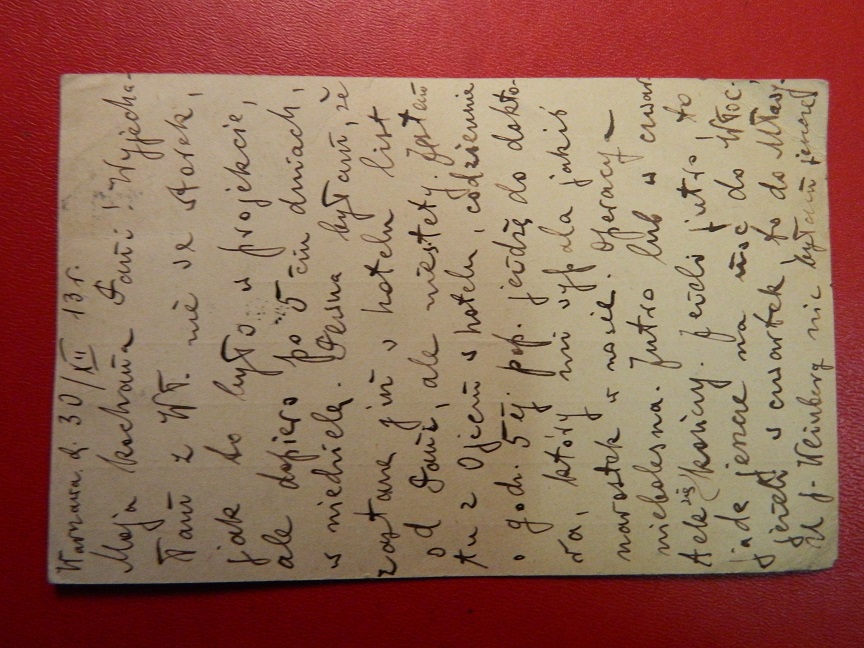 Warszawa. d. 30/XII 13 r.
Moja kochana Pani! Wyjecha-
łam z Wł. nie we wtorek,
jak to było w projekcie,
ale dopiero po 5 ciu dniach,
w niedzielę. Pewna byłam, że
zastanę już w hotelu list
od Pani, ale niestety. Jestem
tu z Ojcem w hotelu, codziennie
o godz. 5 ej pop. jeżdżę do dokto-
ra, który mi wypala jakiś
narostek w nosie. Operacy-
niebolesna. Jutro lub w czwar
tek się kończy. Jeżeli jutro to
jadę jeszcze na noc do Włoc.,
jeżeli w czwartek, to do Mławy.
U J. Weinberg nie byłam jeszcze